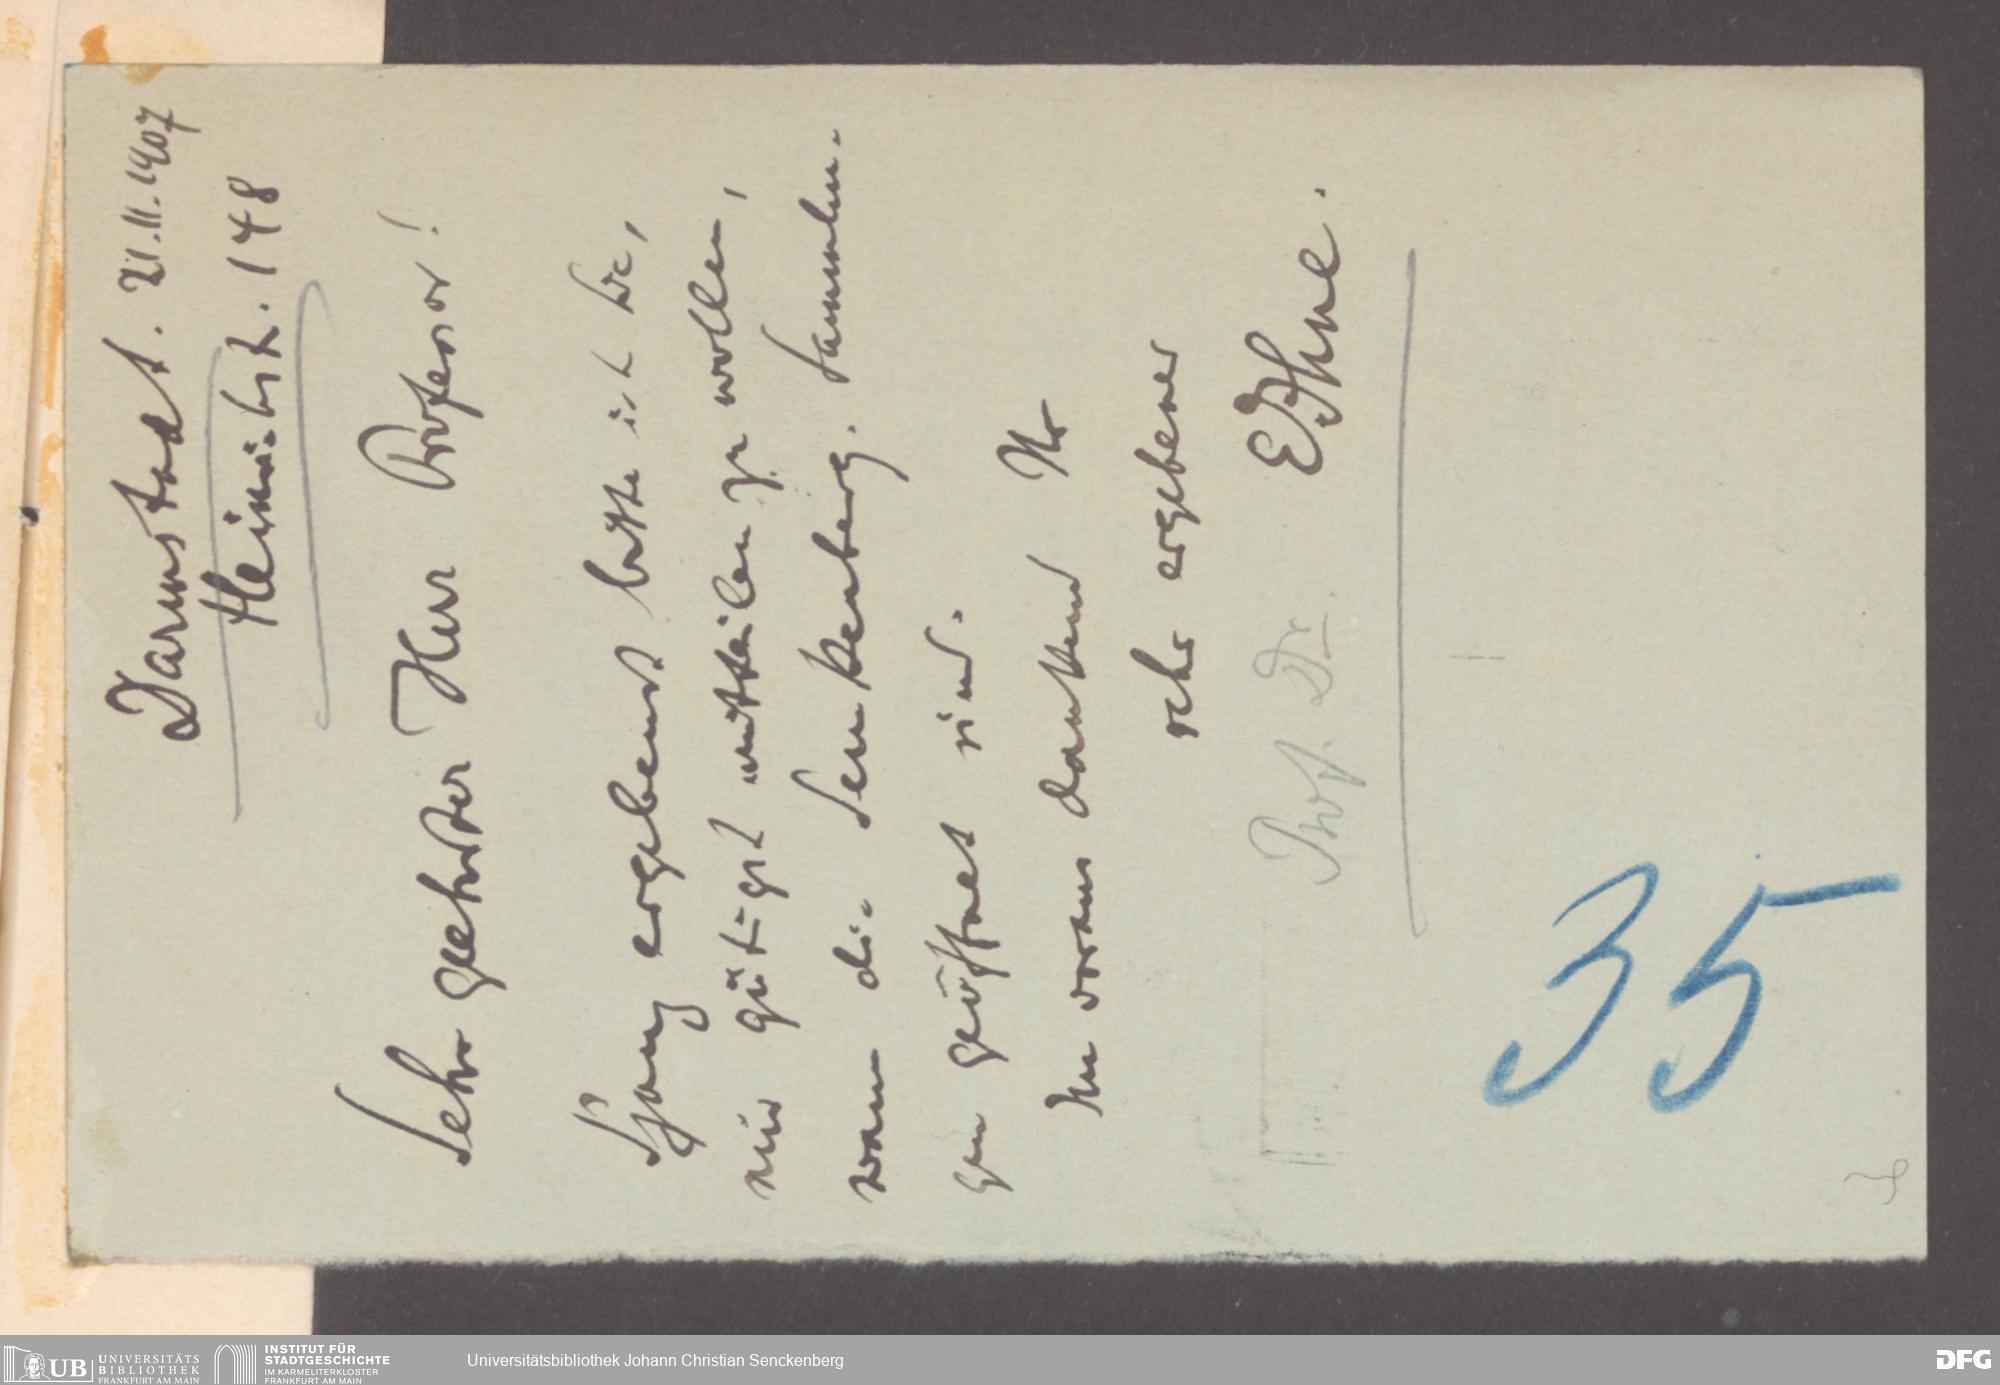 Darmstadt. 21.11.1907
Heinrichstr. 148
Sehr geehrter Herr Professor!
Ganz ergebenst bitte ich Sie,
mir gütigst mitteilen zu wollen,
wann die Senkenberg. Sammlun-
gen geöffnet sind.
Im voraus dankend Ihr
sehr ergebener
Prof. Dr. E Ihne.
35
UB UNIVERSITÄTS
BIBLIOTHEK
FRANKFURT AM MAIN
INSTITUT FÜR
STADTGESCHICHTE
IM KARMELITERKLOSTER
FRANKFURT AM MAIN
Universitätsbibliothek Johann Christian Senckenberg
DFG